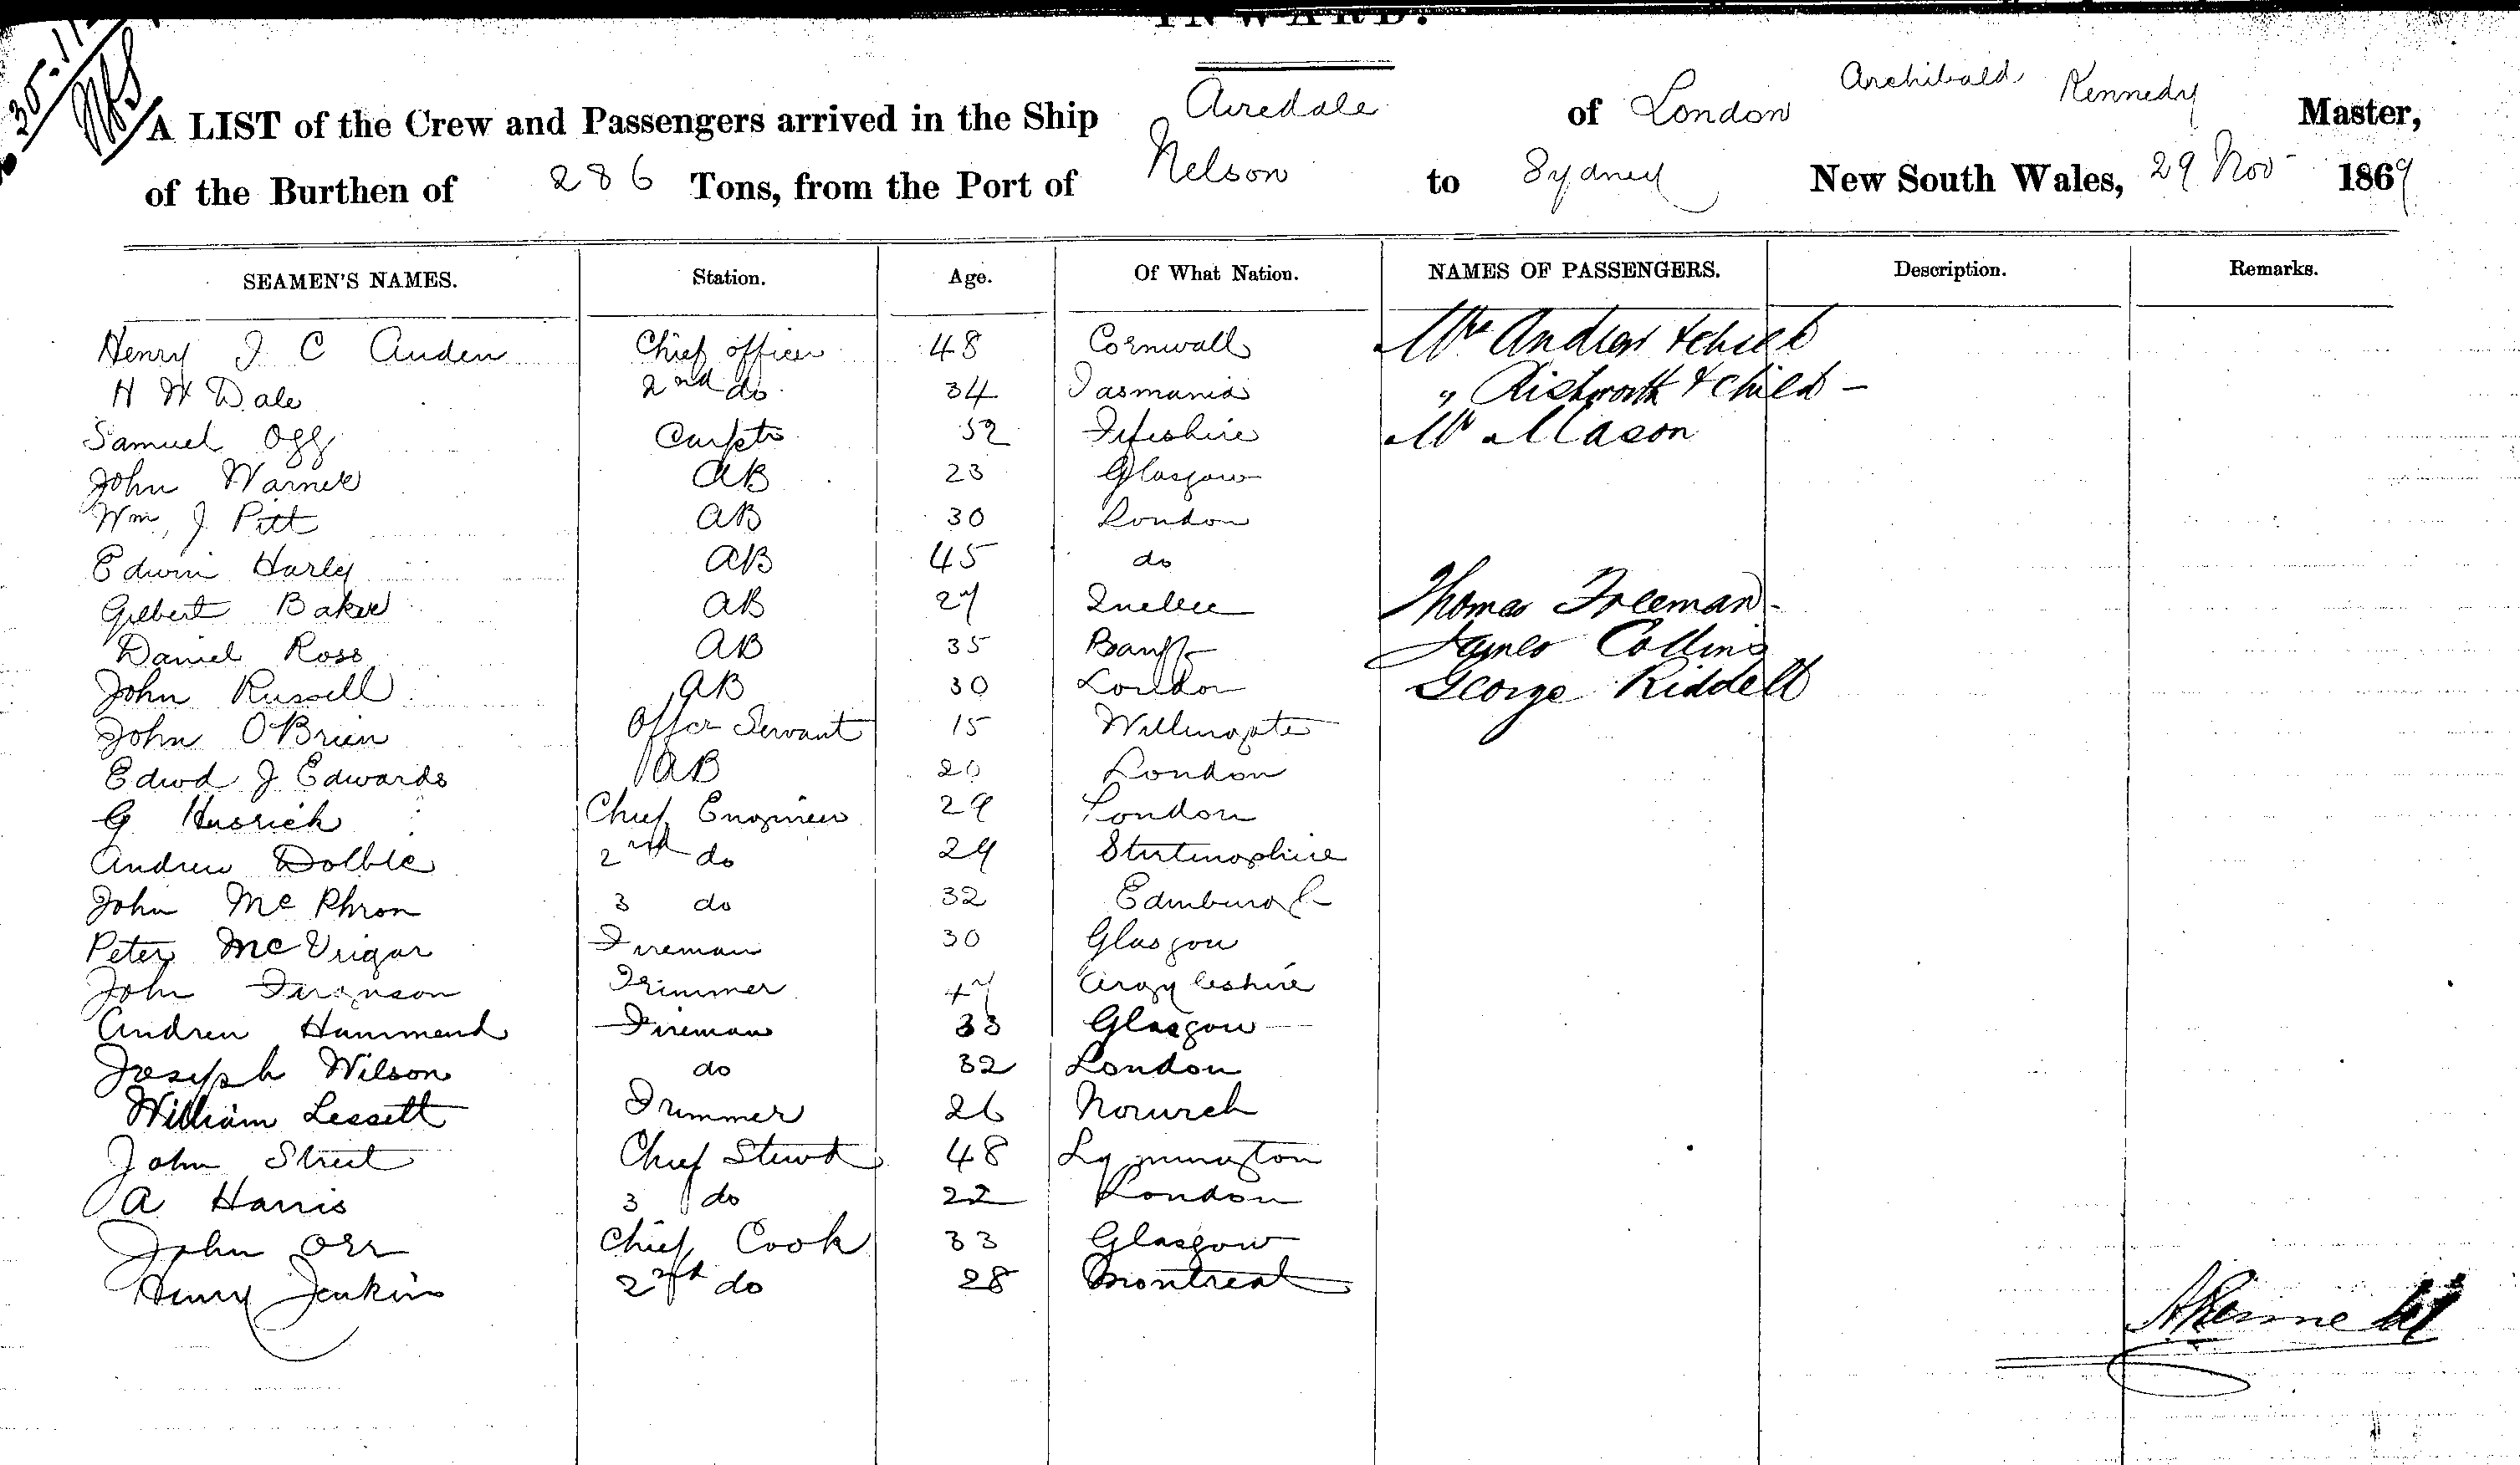 INWARD.
A LIST of the Crew and Passengers arrived in the Ship Airedale of London Archibald Kennedy Master,
of the Burthen of 286 Tons, from the Port of Nelson to Sydney New South Wales, 29 Nov 1869
SEAMEN'S NAMES. Station. Age. Of What Nation. NAMES OF PASSENGERS. Description. Remarks.
Henry J C Anden Chief officer 48 Cornwall Mrs Andrew & child
H H Dale 2nd do 34 Tasmania " Rishworth & child -
Samuel Ogg Carptr 52 Fifeshire Mr Mason
John Warner AB 23 Glasgow
Wm J Pitt AB 30 London
Edwin Harley AB 45 do
Gilbert Baker AB 27 Quebec Thomas Freeman
Daniel Ross AB 35 Banff James Collins
John Russell AB 30 London George Riddell
John O'Brien Offcr Servant 15
Edwd J Edwards AB 20 London
G Chief Engineer 29 London
Andrew Dolble 2nd do 29 Stirlingshire
John McPhron 3 do 32 Edinburgh
Peter McVrigar Fireman 30 Glasgow
John Ferguson Trimmer 47 Argyleshire
Andrew Hammond Fireman 33 Glasgow
Joseph Wilson do 32 London
William Lessett Trimmer 26 Norwich
John Street Chief Stewd 48 Lymington
A Harris 3 do 22 London
John Orr Chief Cook 33 Glasgow
Henry Jenkins 2nd do 28 Montreal
A Kennedy